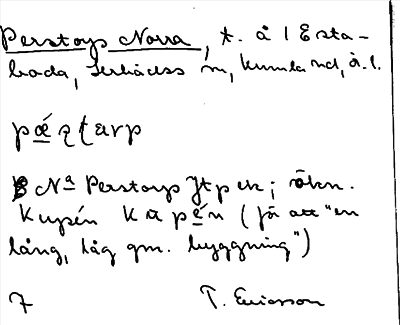 Perstorps Norra, t. å 1 Esta-
boda, Lerbäcks sn, Kumla hd, Ö.l.
pǽʂʈarp
Nª Perstorps Jtp ek; ökn.
Kupén kupé́n (på att "en
lång, låg gm. byggning")
7 T. Ericsson